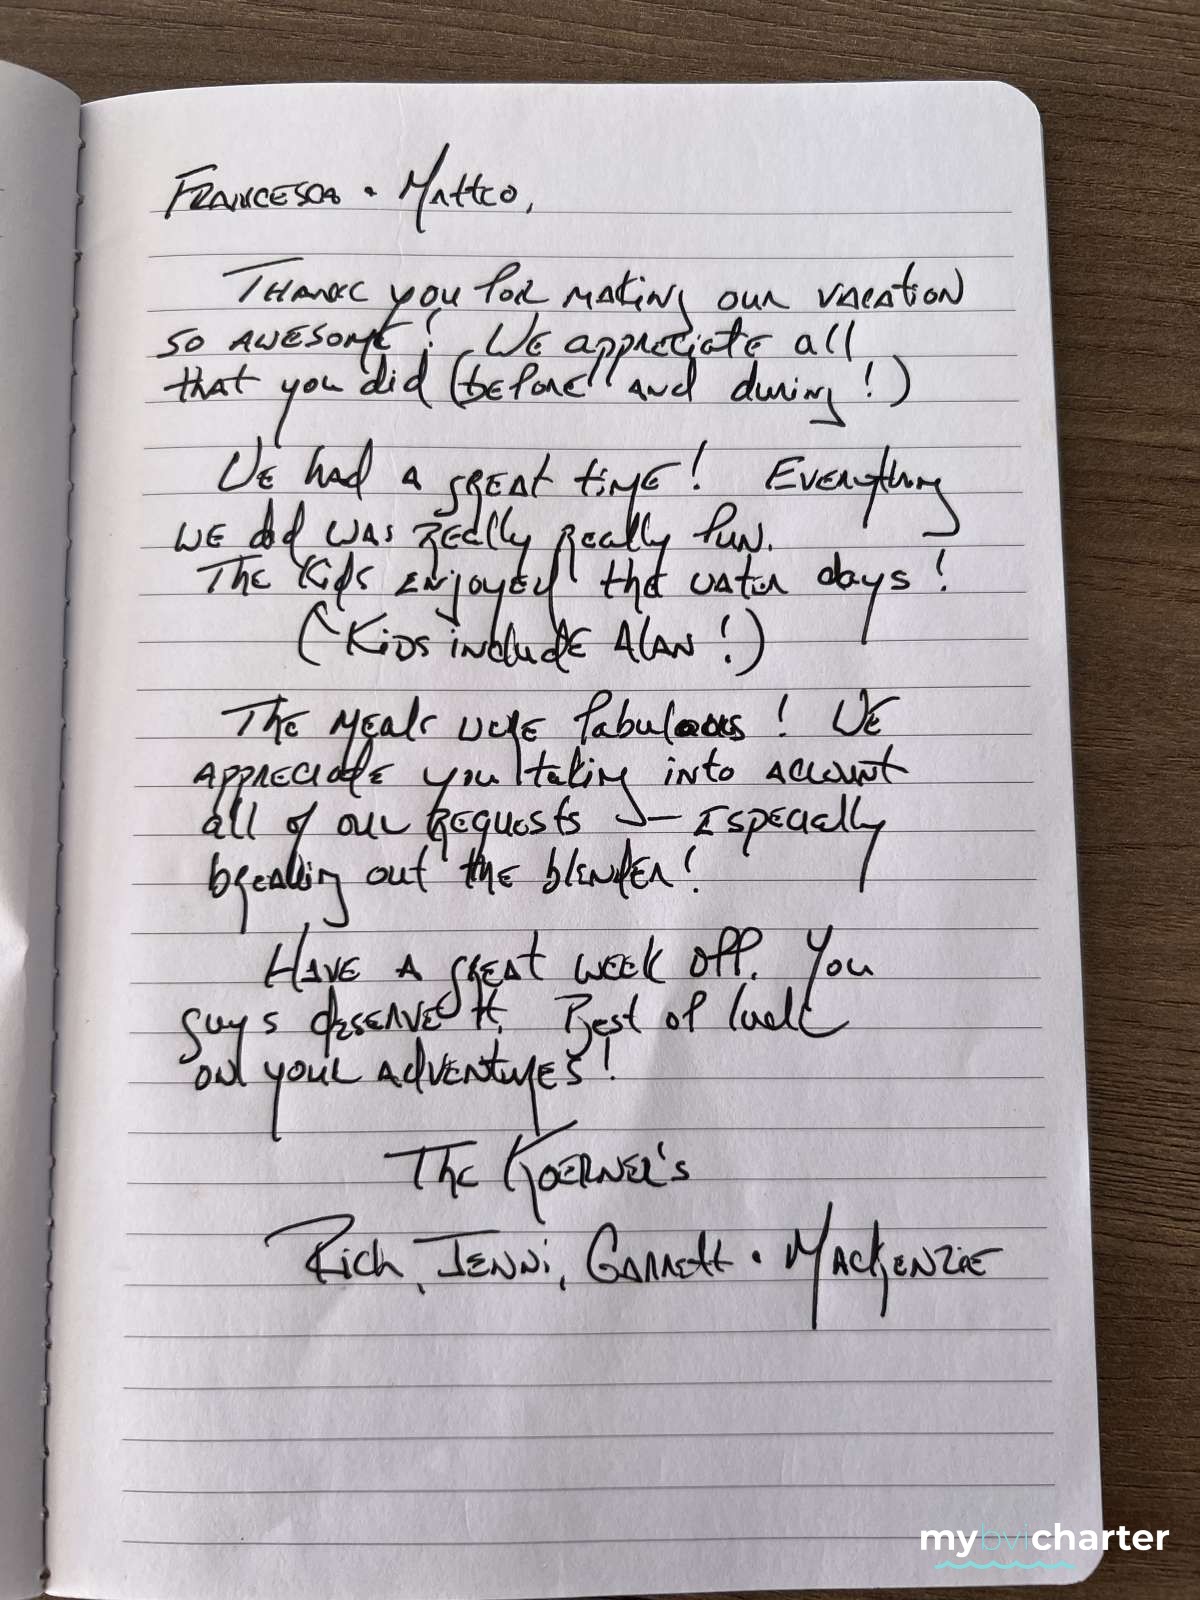 Francesca • Matteo,
Thank you for making our vacation
so awesome! We appreciate all
that you did (before and during!)
We had a great time! Everything
we did was really really fun.
The Kids enjoyed the water days!
(Kids include Alan!)
The meals were fabulous! We
appreciate you taking into account
all of our requests — Especially
breaking out the blender!
Have a great week off. You
guys deserve it. Best of luck
on your adventures!
The Koerner's
Rich, Jenni, Garrett • Mackenzie
mybvicharter